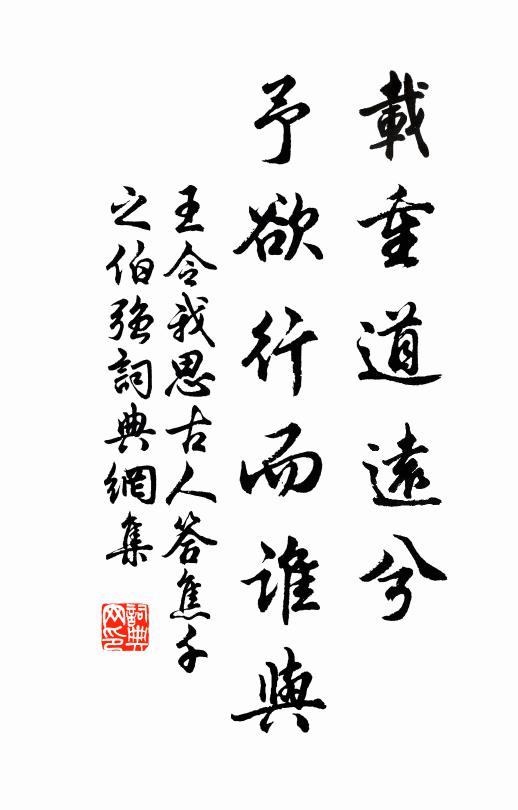 載重道遠兮
予欲行而誰與
王令我思古人答焦千
之伯強詞典網集
詞典
网印